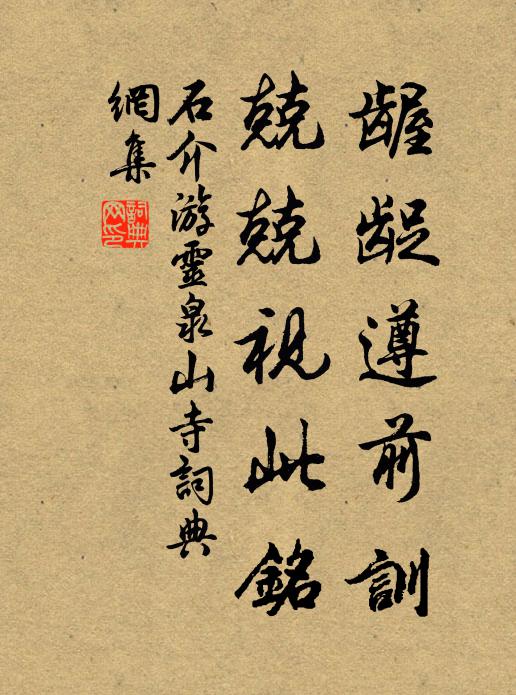 齷齪遵前訓
兢兢視此銘
石介游靈泉山寺詞典
網集
詞典
网印